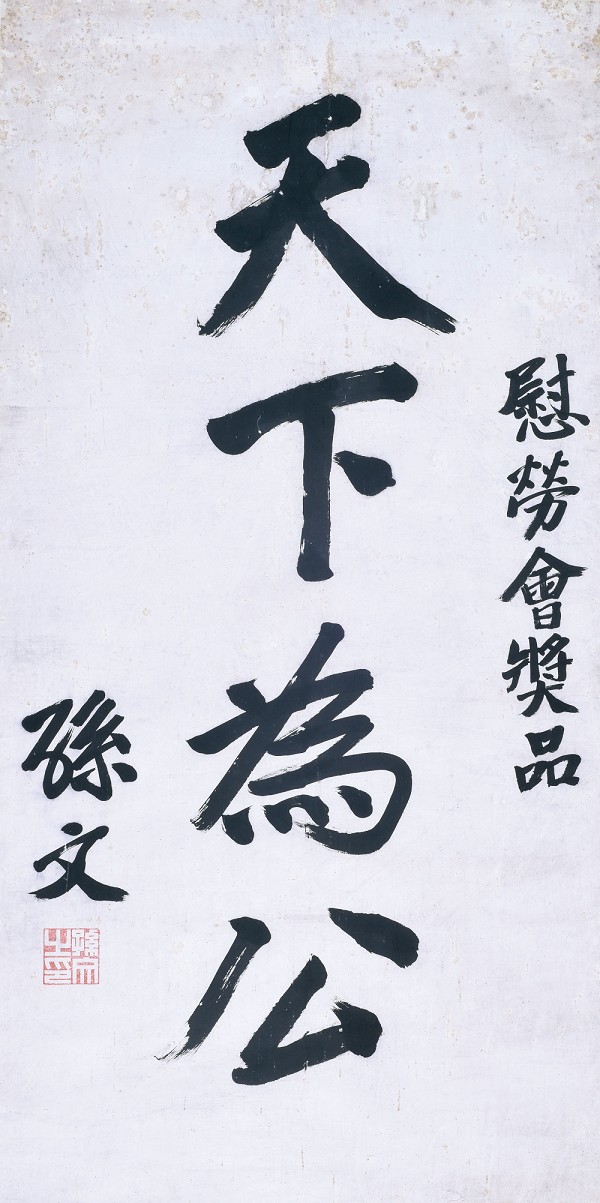 慰勞會獎品
天下為公
孫文
孫文之印